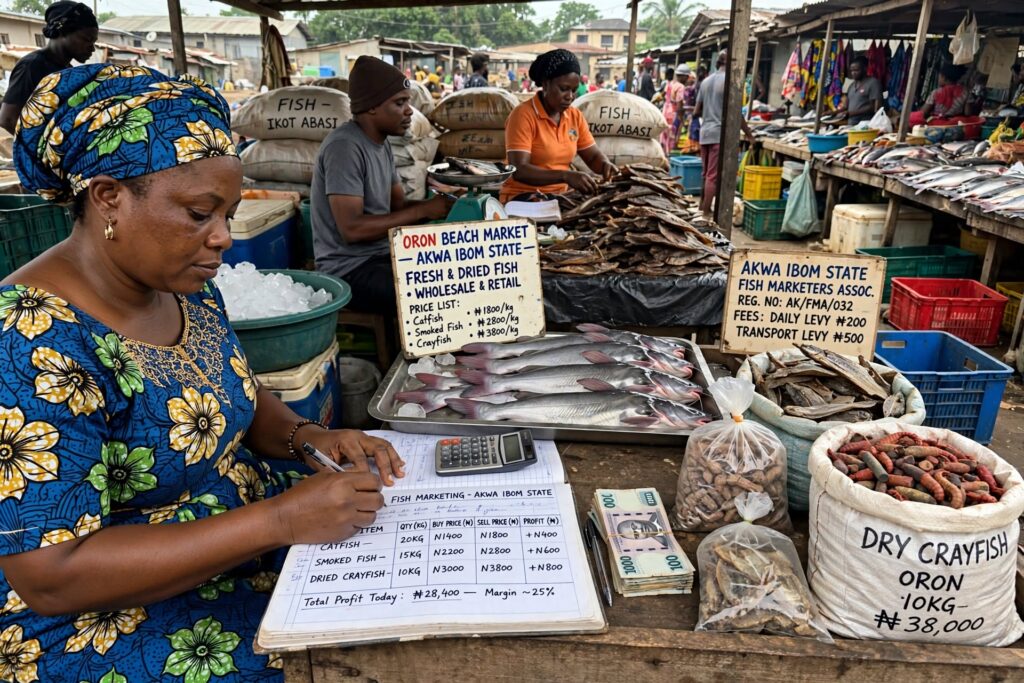 FISH -
IKOT ABASI
FISH
IKOT ABASI
ORON BEACH MARKET
— AKWA IBOM STATE —
FRESH & DRIED FISH
• WHOLESALE & RETAIL
PRICE LIST:
• Catfish - ₦1800/kg
• Smoked Fish - ₦2800/kg
• Crayfish - ₦3800/kg
AKWA IBOM STATE
FISH MARKETERS ASSOC.
REG. NO: AK/FMA/032
FEES: DAILY LEVY ₦200
TRANSPORT LEVY ₦500
FISH MARKETING - AKWA IBOM STATE
ITEM QTY (KG) BUY PRICE (₦) SELL PRICE (₦) PROFIT (₦)
CATFISH — 20KG N1400 N1800 +N400
SMOKED FISH — 15KG N2200 N2800 +N600
DRIED CRAYFISH — 10KG N3000 N3800 +N800
Total Profit Today: ₦28,400 — Margin ~25%
100
1000
DRY CRAYFISH
ORON
10KG -
₦38,000